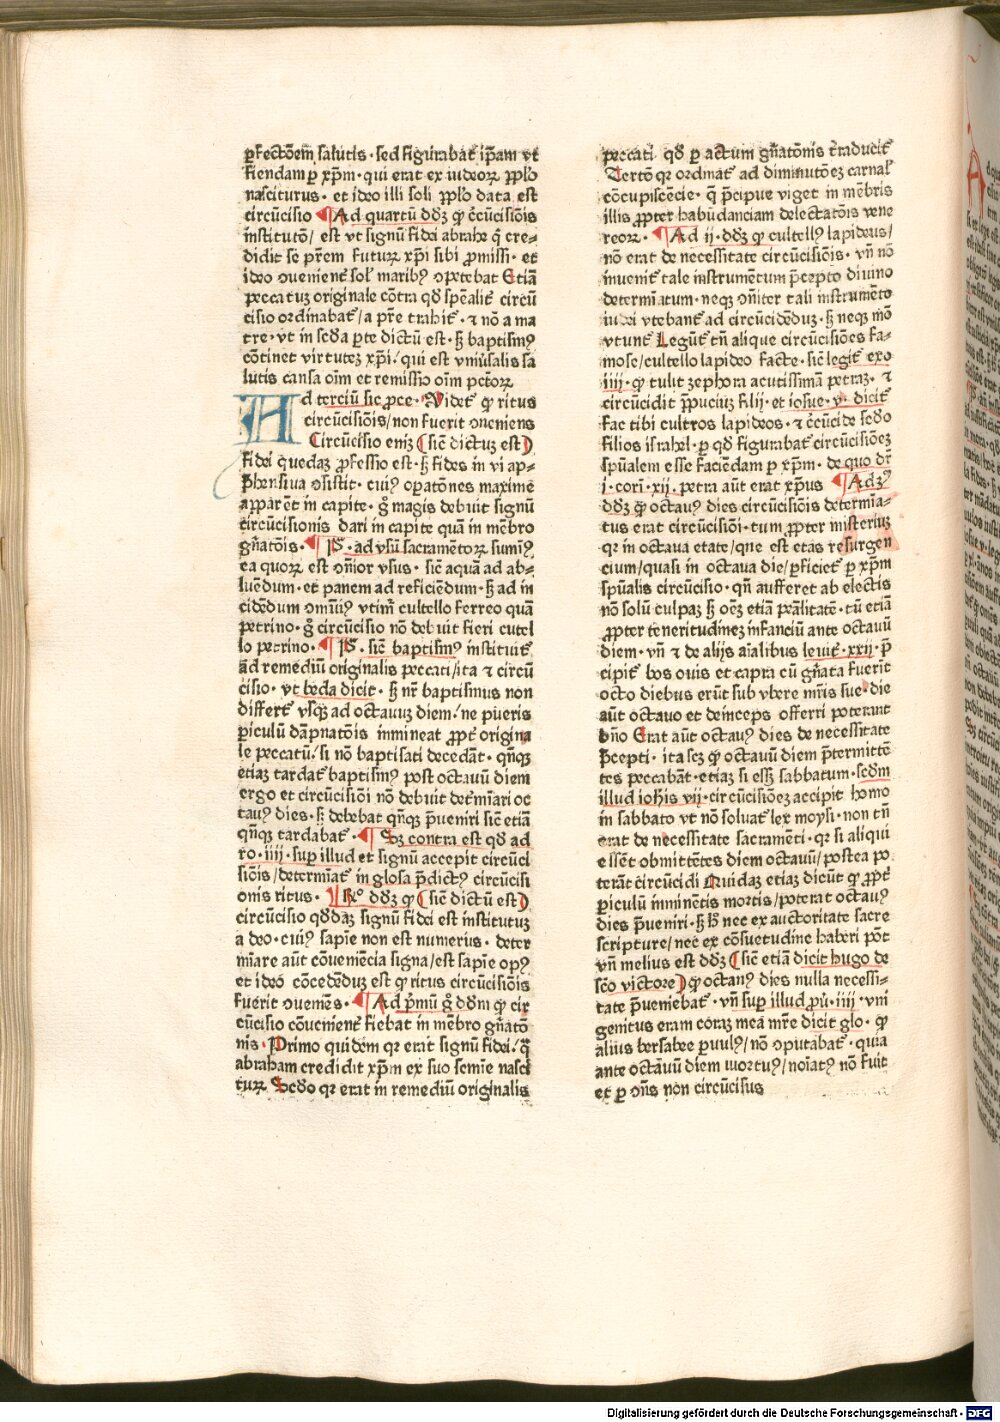 ꝑfectōem salutis · sed figurabat̄ ip̄am vt
fiendam ꝑ xp̄m · qui erat ex iudeoꝝ pp̄lo
nasciturus · et ideo illi soli pp̄lo data est
circūcisio ¶ Ad quartū dd̄ꝫ ꝙ c̄cūcisiōis
institutō / est vt signū fidei abrahe q̄ cre⸗
didit se pr̄em futuꝝ xp̄i sibi ꝓmissi · et
ideo ↄuenient̄ sol̄ maribꝰ ↄpetebat Etiā
peccatuꝫ originale cōtra qd̄ sp̄ealit̄ circū
cisio ordinabat̄ / a pr̄e trahit̄ · ⁊ nō a ma
tre · vt in scd̄a ꝑte dictū est · ꝫ baptismꝰ
cōtinet virtuteꝫ xp̄i / qui est vniūsalis sa
lutis causa oīm et remissio oīm pctōꝝ
Ad terciū sic ꝓce · Videt̄ ꝙ ritus
circūcisiōis / non fuerit ↄueniens
Circūcisio eniꝫ ( sic̄ dictuꝫ est )
fidei q̄uedaꝫ ꝓfessio est · ꝫ fides in vi ap⸗
p̄hensiua ↄsistit · cuiꝰ oꝑatōnes maxime
apparēt in capite · g̊ magis debuit signū
circūcisionis dari in capite quā in mēbro
gn̄atōis · ¶ Pᷓ · ad vsū sacramētoꝝ sumimꝰ
ea quoꝝ est ↄn̄ior vsus · sic̄ aquā ad ab⸗
luēdum · et panem ad reficiēdum · ꝫ ad in
cidēdum ↄmūiꝰ vtim̄ cultello ferreo quā
petrino · g̊ circūcisio nō debuit fieri cutel
lo petrino · ¶ Pᷓ · sic̄ baptismꝰ instituit̄
ad remediū originalis peccati / ita ⁊ circū
cisio · vt beda dicit · ꝫ nr̄ baptismus non
differt̄ vsqꝫ ad octauuꝫ diem / ne pueris
ꝑiculū dāpnatōis immineat ꝓpt̄ origina
le peccatū / si nō baptisati decedāt · qn̄qꝫ
etiaꝫ tardat̄ baptismꝰ post octauū diem
ergo et circūcisiōi nō debuit det̄mīari oc
tauꝰ dies · ꝫ debebat qn̄qꝫ p̄ueniri sic̄ etiā
qn̄qꝫ tardabat̄ · ¶ Sꝫ contra est qd̄ ad
ro · iiii · sup̄ illud et signū accepit circūci
siōis / determīat̄ in glosa p̄dictꝰ circūcisi
onis ritus · ¶ Rᷓo dd̄ꝫ ꝙ ( sic̄ dictū est )
circūcisio qd̄daꝫ signū fidei est institutuꝫ
a deo · cuiꝰ sapīe non est numerus · deter
mīare aūt cōueniēcia signa / est sapīe opꝰ
et ideo cōcedēduꝫ est ꝙ ritus circūcisiōis
fuerit ↄueniēs · ¶ Ad pͥmū g̊ dd̄m ꝙ cir
cūcisio cōuenient̄ fiebat in mēbro gn̄atō
nis · Primo quidem qꝛ erat signū fidei / q̄
abraham credidit xp̄m ex suo semīe nasci
tuꝝ Scd̄o qꝛ erat in remediū originalis
peccati qd̄ ꝑ actum gn̄atōnis traducit̄
Tertō qꝛ ordinat̄ ad diminutōeꝫ carnal̄
cōcupiscēcie · q̄ p̄cipue viget in mēbris
illis ꝓpter habūdanciam delectatōis vene
reoꝝ · ¶ Ad ii · dd̄ꝫ ꝙ cultellꝰ lapideus /
nō erat de necessitate circūcisiōis · vn̄ nō
inuenit̄ tale instrumētum p̄cepto diuino
determīatum · neqꝫ ↄīter tali instrumēto
iudei vtebant̄ ad circūcidēduꝫ · ꝫ neqꝫ mō
vtunt̄ Legūt̄ tn̄ alique circūcisiōes fa⸗
mose / cultello lapideo facte · sic̄ legit̄ exo
iiii · ꝙ tulit zephora acutissimā petraꝫ · ⁊
circūcidit p̄puciuꝫ filij · et iosue · v · dicit̄
fac tibi cultros lapideos · ⁊ c̄cūcide scd̄o
filios israhel · ꝑ qd̄ figurabat̄ circūcisiōeꝫ
spūalem esse faciēdam ꝑ xp̄m · de quo dr̄
i · cori · xij · petra aūt erat xp̄us ¶ Ad 3ꝰ
dd̄ꝫ ꝙ octauꝰ dies circūcisiōis determīa⸗
tus erat circūcisiōi · tum ꝓpter misteriuꝫ
qꝛ in octaua etate / que est etas resurgen
cium / quasi in octaua die / ꝑficiet̄ ꝑ xp̄m
spūalis circūcisio · qn̄ aufferet ab electis
nō solū culpaꝫ ꝫ oēꝫ etiā penālitatē · tū etiā
ꝓpter teneritudineꝫ infanciū ante octauū
diem · vn̄ ⁊ de alijs aīalibus leuit̄ · xxij · p̄
cipit̄ bos ouis et capra cū gn̄ata fuerit
octo diebus erūt sub vbere mr̄is sue · die
aūt octauo et deinceps offerri poterunt
dn̄o Erat aūt octauꝰ dies de necessitate
p̄cepti · ita scꝫ ꝙ octauū diem p̄termittē
tes peccabāt · etiaꝫ si ess̄ sabbatum · scd̄m
illud ioh̄is vij · circūcisiōeꝫ accipit homo
in sabbato vt nō soluat̄ lex moysi · non tn̄
erat de necessitate sacramēti · qꝛ si aliqui
essēt obmittētes diem octauū / postea po
terāt circūcidi Quidaꝫ etiaꝫ dicūt ꝙ ꝓpt̄
ꝑiculū imminētis mortis / poterat octauꝰ
dies p̄ueniri · ꝫ h̄ nec ex auctoritate sacre
scripture / nec ex cōsuetudine haberi pōt
vn̄ melius est dd̄ꝫ ( sic̄ etiā dicit hugo de
sc̄o victore ) ꝙ octauꝰ dies nulla necessi⸗
tate p̄ueniebat̄ · vn̄ sup̄ illud ꝓu̇ · iiij · vni
genitus eram coraꝫ mea mr̄e dicit glo · ꝙ
alius bersabee ꝑuulꝰ / nō ↄputabat̄ · quia
ante octauū diem mortuꝰ / noīatꝰ nō fuit
et ꝑ ↄn̄s non circūcisus
Digitalisierung gefördert durch die Deutsche Forschungsgemeinschaft - DFG